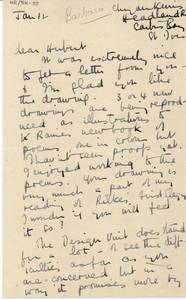 Jan 12
Headland
Carbis Bay
St. Ives
dear Herbert
It was extremely nice
to get a letter from you
& I'm glad you like
the drawing. 3 or 4 new
drawings are being reprod-
uced as illustrations to
K Raine's new book of
poems one in colour but
I haven't seen proofs yet.
I enjoyed working to the
poems. Your drawing is
very much a part of my
reading of Rilke.
I wonder if you will feel
it so?
The Design Unit does stand
for a lot of
as far as you
are concerned but in a
way it promises more by